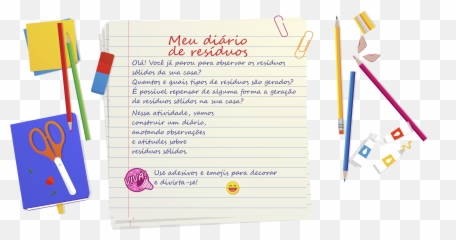 Meu diário
de resíduos
Olá! Você já parou para observar os resíduos
sólidos da sua casa?
Quantos e quais tipos de resíduos são gerados?
É possível repensar de alguma forma a geração
de resíduos sólidos na sua casa?
Nessa atividade, vamos
construir um diário,
anotando observações
e atitudes sobre
resíduos sólidos.
Use adesivos e emojis para decorar
e divirta-se!